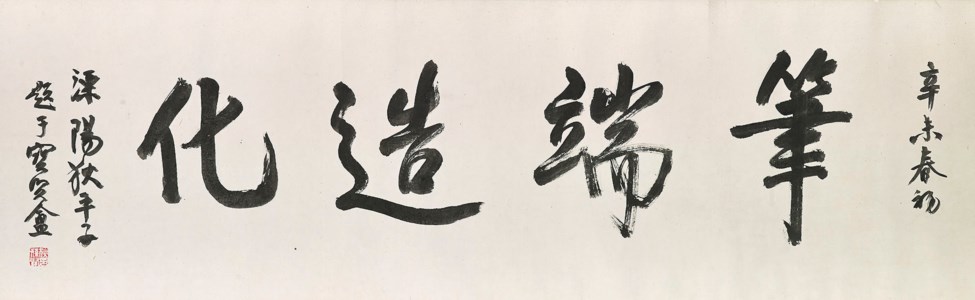 辛未春初
筆端造化
溧陽狄平子
題于寶賢盦